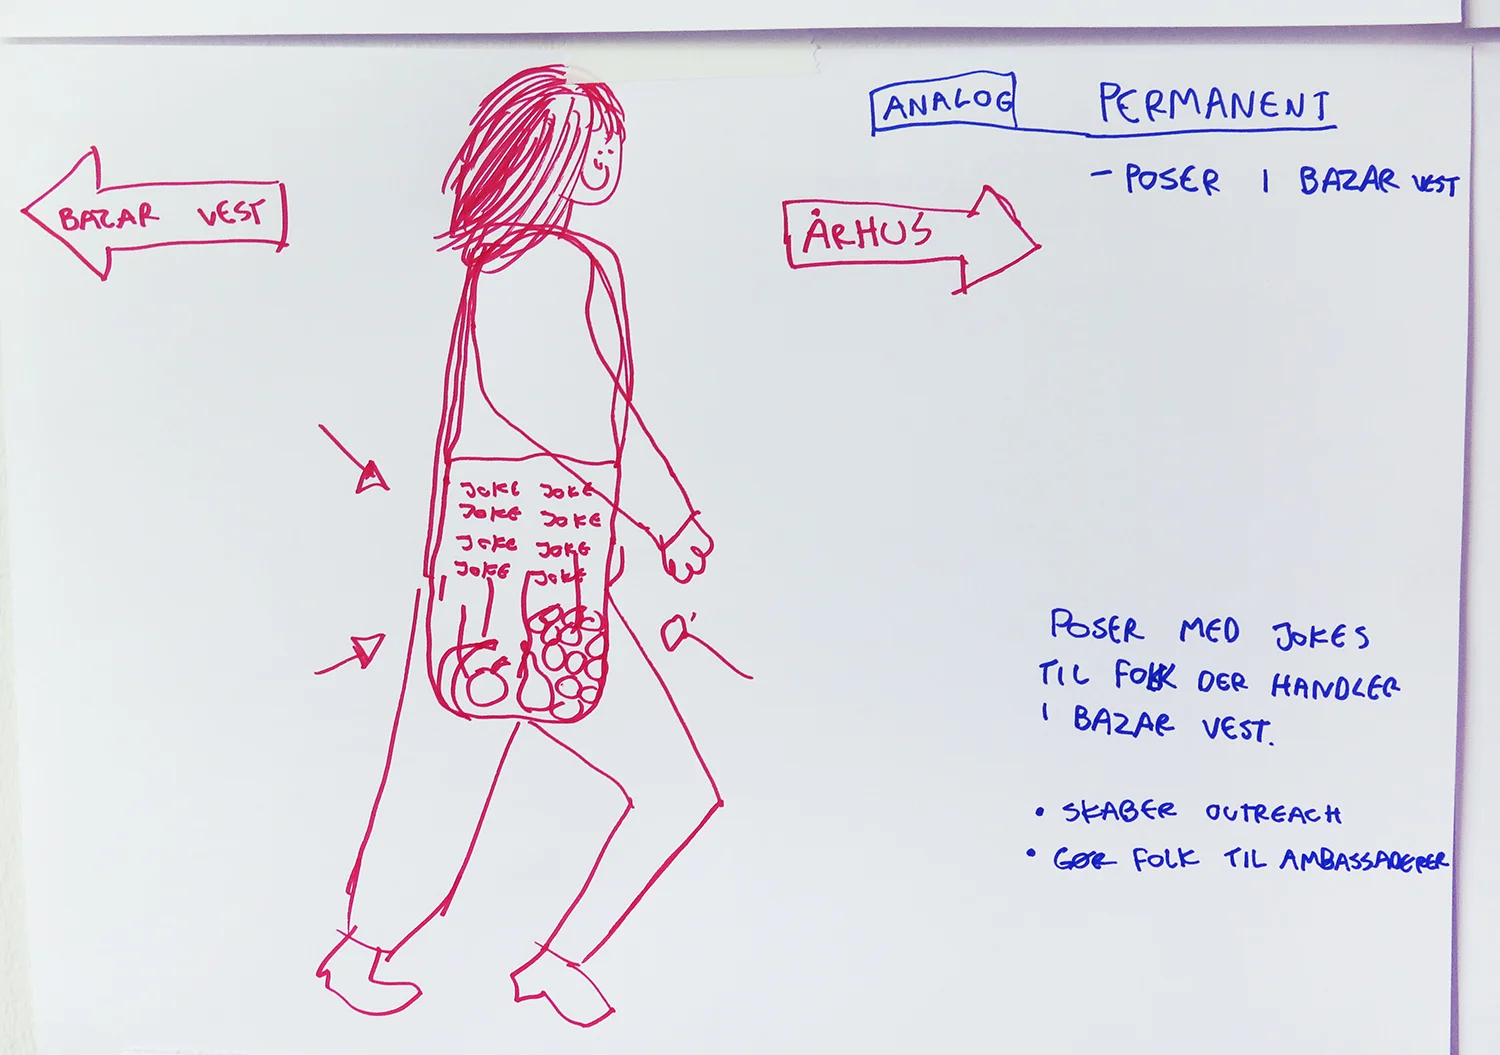 ANALOG PERMANENT
- POSER I BAZAR VEST
BAZAR VEST
ÅRHUS
JOKE JOKE
JOKE JOKE
JOKE JOKE
JOKE JOKE
POSER MED JOKES
TIL FOLK DER HANDLER
I BAZAR VEST.
• SKABER OUTREACH
• GØR FOLK TIL AMBASSADERER